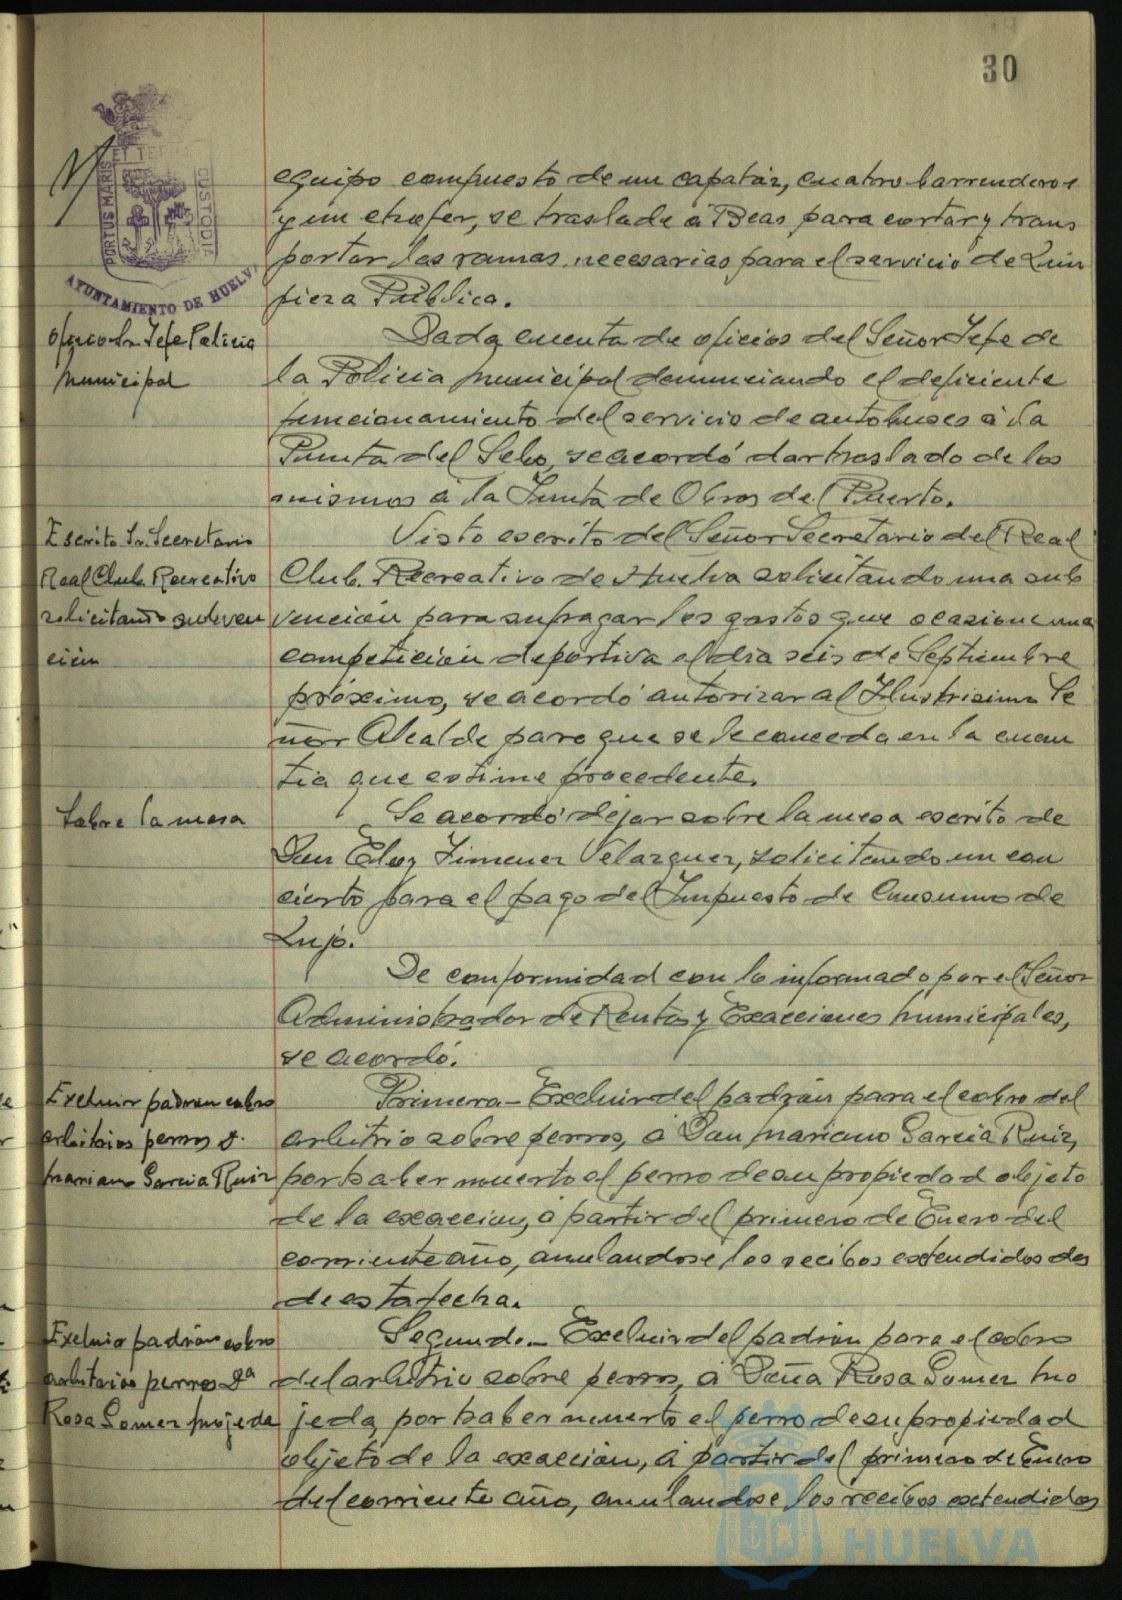 30
PORTUS MARIS ET TERRÆ CUSTODIA
AYUNTAMIENTO DE HUELVA
equipo compuesto de un capataz, cuatro barrenderos
y un chofer, se traslade á Beas para cortar y trans
portar las ramas necesarias para el servicio de Lim
pieza Pública.
Oficio Sr. Jefe Policia
municipal
Dada cuenta de oficios del Señor Jefe de
la Policia municipal denunciando el deficiente
funcionamiento del servicio de autobuses á la
Punta del Sebo, se acordó dar traslado de los
mismos á la Junta de Obras del Puerto.
Escrito Sr. Secretario
Real Club Recreativo
solicitando subven
ción
Visto escrito del Señor Secretario del Real
Club Recreativo de Huelva solicitando una sub
vención para sufragar los gastos que ocasione una
competición deportiva el dia seis de Septiembre
próximo, se acordó autorizar al Ilustrisimo Se
ñor Alcalde para que se le conceda en la cuan
tia que estime procedente.
Sobre la mesa
Se acordó dejar sobre la mesa escrito de
Don Eloy Jimenez Velazquez, solicitando un con
cierto para el pago del Impuesto de Consumo de
Lujo.
De conformidad con lo informado por el Señor
Administrador de Rentas y Exacciones municipales,
se acordó.
Excluir padron cobro
arbitrios perros D.
Mariano Garcia Ruiz
Primero.- Excluir del padrón para el cobro del
arbitrio sobre perros, á Don Mariano Garcia Ruiz,
por haber muerto el perro de su propiedad objeto
de la exaccion, á partir del primero de Enero del
corriente año, anulandose los recibos extendidos des
de esta fecha.
Excluir padrón cobro
arbitrios perros Dª
Rosa Gomez Mojeda
Segundo.- Excluir del padrón para el cobro
del arbitrio sobre perros, á Doña Rosa Gomez Mo
jeda, por haber muerto el perro de su propiedad
objeto de la exacción, á partir del primero de Enero
del corriente año, anulandose los recibos extendidos
Ayuntamiento de
HUELVA